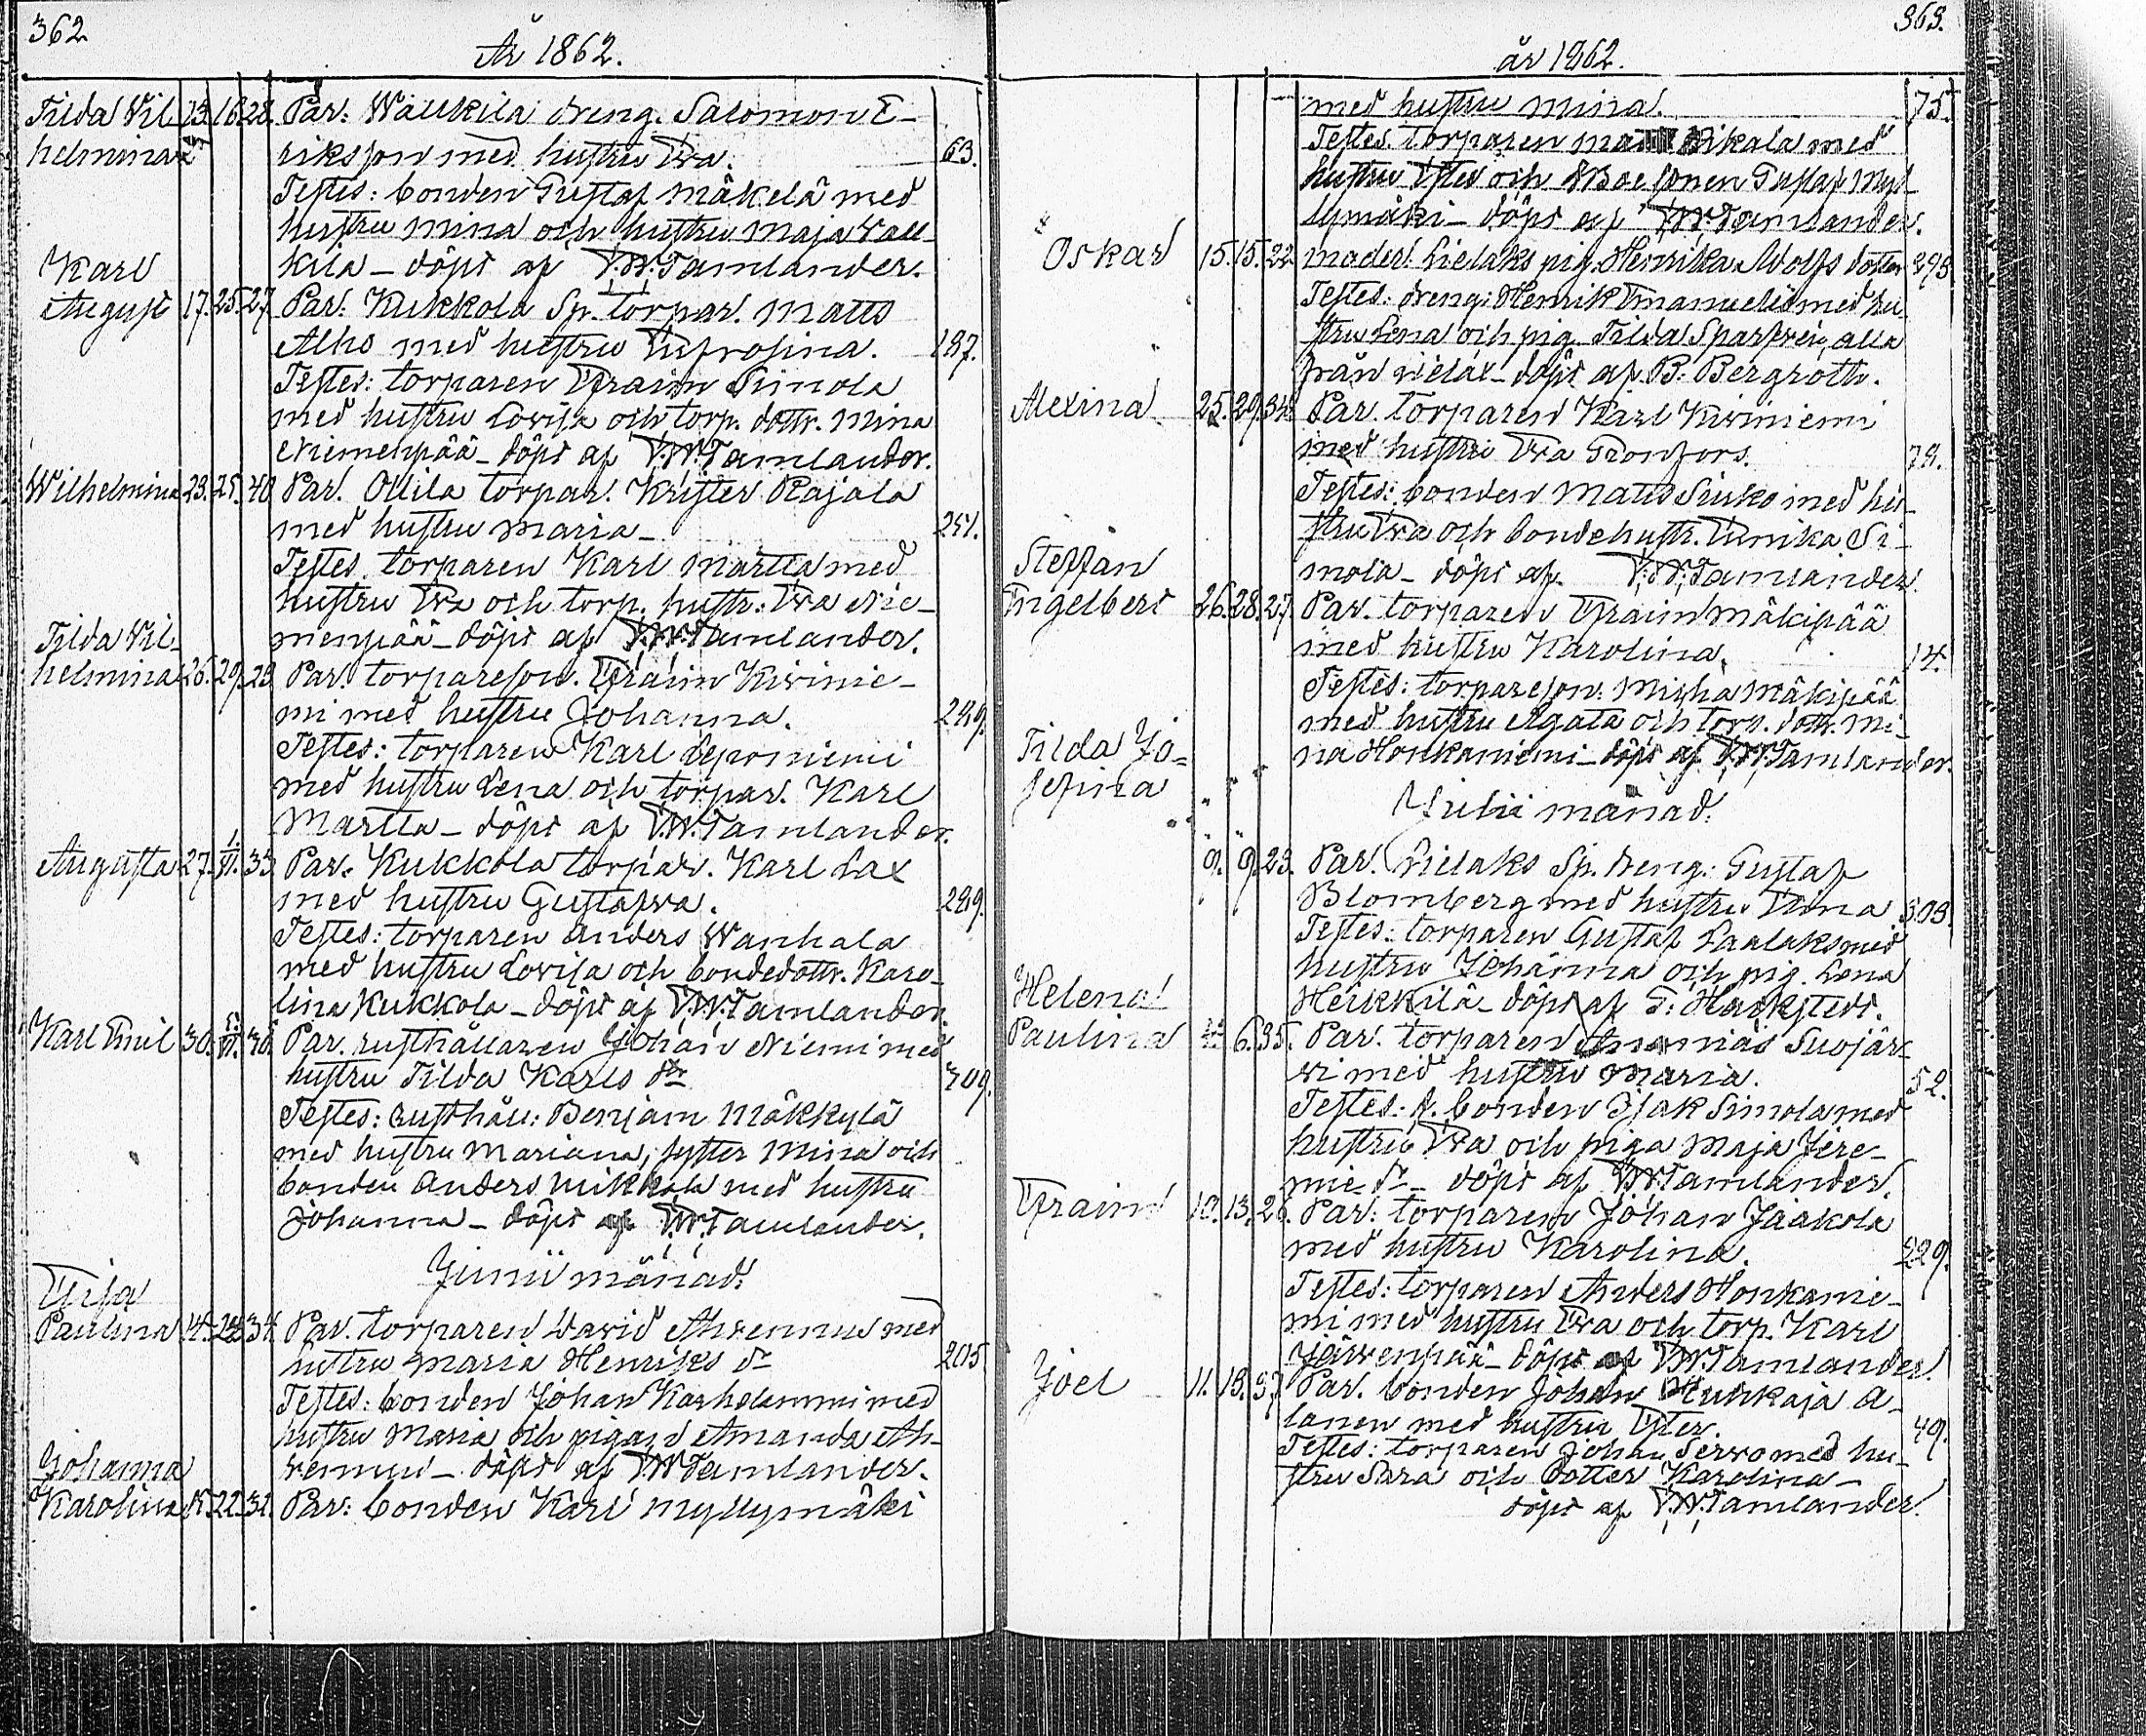 362
År 1862.
Tilda Vil- 13. 16. 28. Par: Wälikilä dreng. Salomon E-
helmina riksson med hustru Eva. 63.
Testes: bonden Gustaf Mäkelä med
hustru Mina och hustru Maja
kilä - döpt af V.W. Tamlander.
Karl
August 17. 25. 27. Par: Kukkola Sp. torpar. Matts
Alho med hustru Eufrosina. 187.
Testes: torparen Efraim Simola
med hustru Lovisa och torp. dottr. Mina
Niemenpää - döpt af V.W. Tamlander.
Wilhelmina 23. 25. 40. Par. Ollila torpar. Krister Rajala
med hustru Maria -
Testes. torparen Karl Martla med
hustru Eva och torp. hustr: Eva Nie-
menpää - döpt af V.W. Tamlander.
Tilda Vil-
helmina 26. 29. 23. Par. torpareson. Efraim Kivinie-
mi med hustru Johanna. 249.
Testes: torparen Karl Leponiemi
med hustru Lena och torpar. Karl
Martla - döpt af V.W. Tamlander.
Augusta 27. 1/VI. 33. Par. Kukkola torpar. Karl Lax
med hustru Gustafva. 249.
Testes: torparen Anders Wanhala
med hustru Lovisa och bondedottr. Karo-
lina Kukkola - döpt af V.W. Tamlander.
Karl Emil 30. 1/VI. 30. Par. rusthållaren Johan Niemi med
hustru Tilda Karls dr 309.
Testes: Rusthåll: Benjam Mäkkylä
med hustru Mariana, syster Mina och
bonden Anders Mikkola med hustru
Johanna - döpt af V.W. Tamlander.
Junii månad.
Eufa
Paulina 4. 34. Par. torparen David Ahvennus med
hustru Maria Henriks dr 205
Testes: bonden Johan Karhulammi med
hustru Maria och pigan Amanda Ah-
vennus - döpt af V.W. Tamlander.
Johanna
Karolina 15. 22. 32. Par: bonden Karl Myllymäki
363.
år 1862.
med hustru Mina. 75.
Testes. torparen med
hustru Ester och Gustaf Myl-
lymäki - döpt af V.W. Tamlander.
Oskar 15. 15. 22. moder: Lielaks pig. Henrika Adolfs dotter 293.
Testes: dreng: Henrik Emanuels med hu-
stru Lena och pig. Tilda Sparfven, alla
från Lielax - döpt af B. Bergroth.
Alexina 25. 29. 34. Par. torparen Karl Kiviniemi
med hustru Eva Gronfors. 79.
Testes: bonden Matts Sisko med hu-
stru Eva och bondehustr. Ennika Si-
mola - döpt af V.W. Tamlander.
Steffan
Engelbert 26. 28. 27. Par. torparen Efraim Mäkipää
med hustru Karolina. 14.
Testes: torpareson: Misha Mäkipää
med hustru Agata och torp. dottr. Mi-
na Honkaniemi - döpt af V.W. Tamlander.
Tilda Jo-
sefina
Julii månad.
9. 9. 23. Par. Lielaks Sp. dreng: Gustaf
Blomberg med hustru Anna 303.
Testes: torparen Gustaf Laalaks med
hustru Johanna och pig. Lena
Heikkilä - döpt af G: Hacksteds.
Helena
Paulina 6. 35. Par. torparen Ananias Suojär-
vi med hustru Maria. 52.
Testes: f. bonden Isak Simola med
hustru Eva och piga Maja Jere-
mie dr - döpt af V.W. Tamlander.
Efraim 10. 13. 26. Par: torparen Johan Jaakola
med hustru Karolina. 229.
Testes: torparen Anders Honkanie-
mi med hustru Eva och torp. Karl
Järvenpää - döpt af V.W. Tamlander
Joel 11. 13. 37. Par. bonden Johan Huhkaja A-
lanen med hustru Ester. 49.
Testes: torparen Johan Servo med hu-
stru Sara och dotter Karolina -
döpt af V.W. Tamlander.